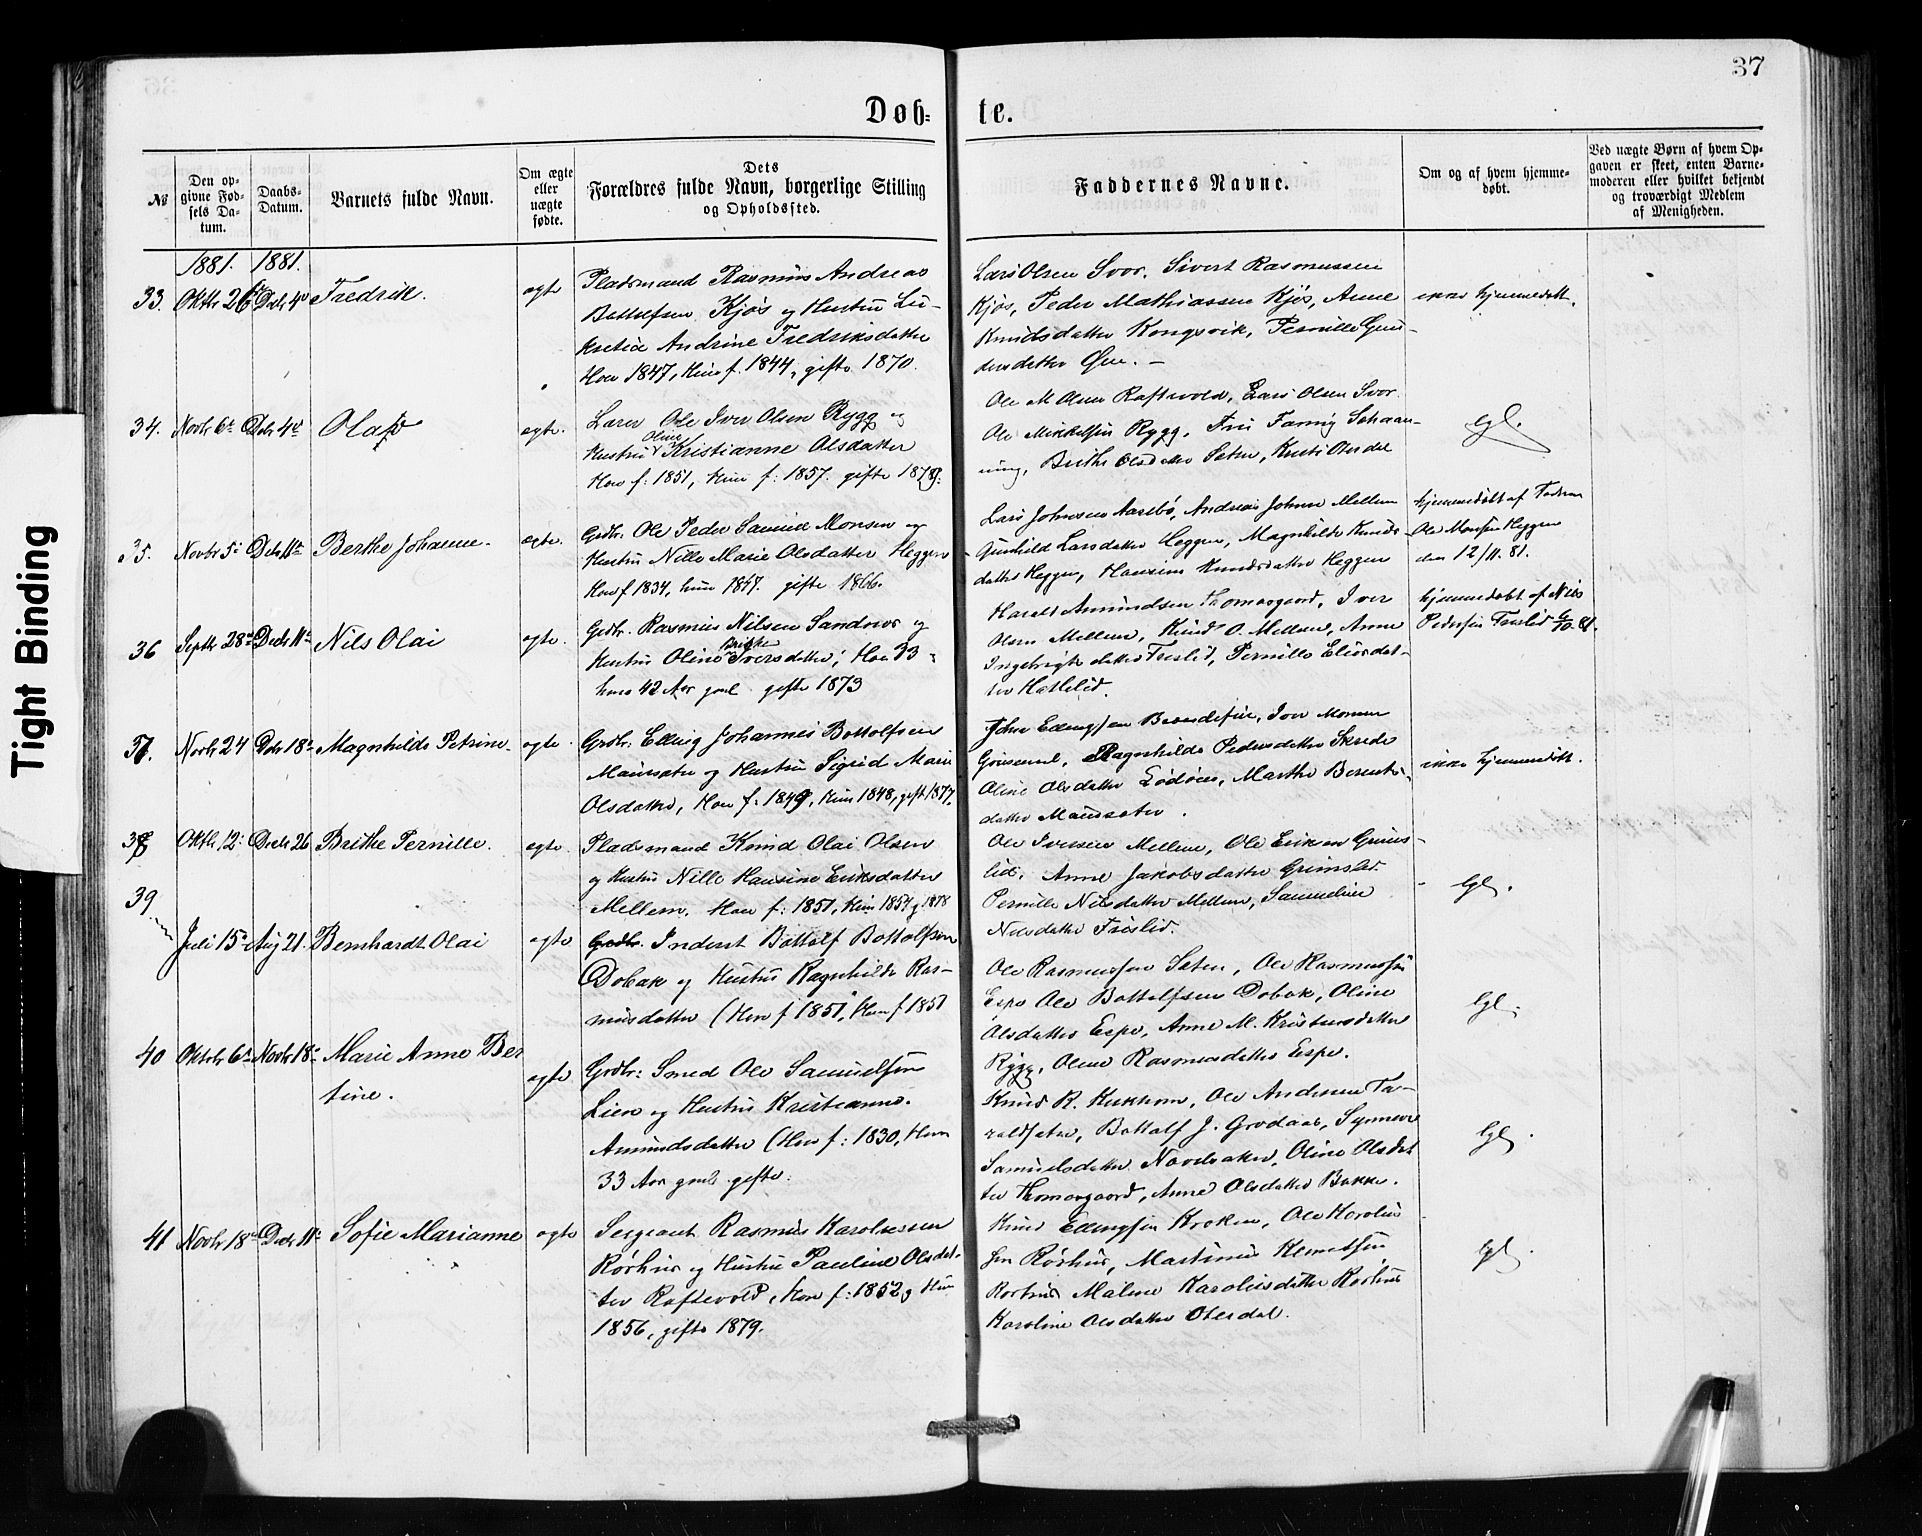 37
Døb-
te.
№
Den op-
givne Fød-
sels Da-
tum.
Daabs-
Datum.
Barnets fulde Navn.
Om ægte
eller
uægte
fødte.
Dets
Forældres fulde Navn, borgerlige Stilling
og Opholdssted.
Faddernes Navne.
Om og af hvem hjemme-
døbt.
Ved uægte Børn af hvem Op-
gaven er skeet, enten Barne-
moderen eller hvilket bekjendt
og troværdigt Medlem
af Menigheden.
1881. 1881.
33. Oktbr 26 Debr 4 Fredrik. ægte
Pladsmand Rasmus Andreas
Bottolfsen Kjøs og Hustru Lu-
kretia Andrine Fredriksdatter
Han 1847, Hun f. 1844, gifte 1870.
Lars Olsen Svor. Sivert Rasmussen
Kjøs, Peder Mathiassen Kjøs, Anne
Knudsdatter Kongsvik, Pernille Gun-
dersdatter Øen.
ikke hjemmedøbt.
34. Novbr 6 Debr 4 Olaf ægte.
Lærer Ole Iver Olsen Rygg og
Oline
Hustru Kristianne Olsdatter
Han f: 1851, Hun f: 1857. gifte 1879.
Ole M Olsen Raftevold, Lars Olsen Svor
Ole Mikkelsen Rygg, Frk Fanny Schaan-
ning, Brithe Olsdatter Sætre,
lgl.
35. Novbr 5 Debr 11 Berthe Johanne. ægte.
Grdbr. Ole Peder Samuel Monsen og
Hustru Nille Marie Olsdatter Heggen
Han f 1834, hun 1847. gifte 1866.
Lars Johnsen Aarebø, Andreas Johnsen Mellem
Gunhild Larsdatter Heggen, Magnhilde Knuds-
datter Heggen, Hansine Knudsdatter Heggen
hjemmedøbt af Faderen
Ole Monsen Heggen
den 12/11. 81.
36 Septbr 28 Decbr 11 Nils Olai ægte.
Grdbr. Rasmus Nilsen Sandnes og
Brithe
Hustru Oline Iversdatter; Han 33
hun 42 Aar gml. gifte 1873
Harald Amundsen Thomasgaard, Iver
Olsen Mellem, Knud O. Mellem, Anne
Ingebrigtsdatter Frislid, Pernille Eliasdat-
ter Hatlelid.
hjemmedøbt af Nils
Pedersen Frislid 6/10. 81.
37. Novbr 24 Debr 18 Magnhilde Petrine. ægte.
Grdbr. Elling Johannes Bottolfsen
Maurseter og Hustru Sigrid Marie
Olsdatter, Han f: 1849, Hun 1848, gift 1877.
John Ellingsen Iver Monsen
Ragnhilde Pedersdatter Skrede
Oline Olsdatter Lødøen, Marthe Berents-
datter Maurseter.
ikke hjemmedøbt.
38 Oktbr 12 Decbr 26 Brithe Pernille. ægte.
Pladsmand Knud Olai Olsen
og Hustru Nille Hansine Eriksdatter
Mellem. Han f: 1851, Hun 1854 g. 1878
Ole Iversen Mellem, Ole Eriksen Grims-
lid, Anne Jakobsdatter Grimslid.
Pernille Nilsdatter Mellem, Samueline
Nilsdatter Frislid.
lgl.
39
Juli 15 Aug 21. Bernhardt Olai ægte
Grdbr. Inderst Bottolf Bottolfsen
Dobak og Hustru Ragnhilde Ras-
musdatter (Han f 1851, Hun f 1851
Ole Rasmussen Sætre, Ole Rasmussen
Espe Ole Bottolfsen Dobak, Oline
Olsdatter Espe, Anne M. Kristensdatter
Rygg, Oline Rasmusdatter Espe.
lgl.
40 Oktbr 6 Novbr 18 Marie Anne Ber
tine. ægte
Grdbr: Smed Ole Samuelsen
Lien og Hustru Kristianne.
Amundsdatter (Han f: 1830, Hun
33 Aar gml. gifte.
Knud R. Ole Andersen Ta-
raldseter, Bottolf J. Grodaas, Synneve
Samuelsdatter Navelsaker, Oline Olsdat
ter Thomasgaard, Anne Olsdatter Bakke.
lgl.
41 Novbr 18 Decbr 11 Sofie Marianne ægte
Sergeant Rasmus Karolussen
Rørhus og Hustru Pauline Olsdat-
ter Raftevold, Han f: 1852, Hun
1856, gifte 1879.
Knud Ellingsen Kroken, Ole Karolus
sen Rørhus, Martinus Klemetsen
Rørhus Malene Karolusdatter Rørhus
Karoline Olsdatter Otterdal.
lgl.
Tight Binding